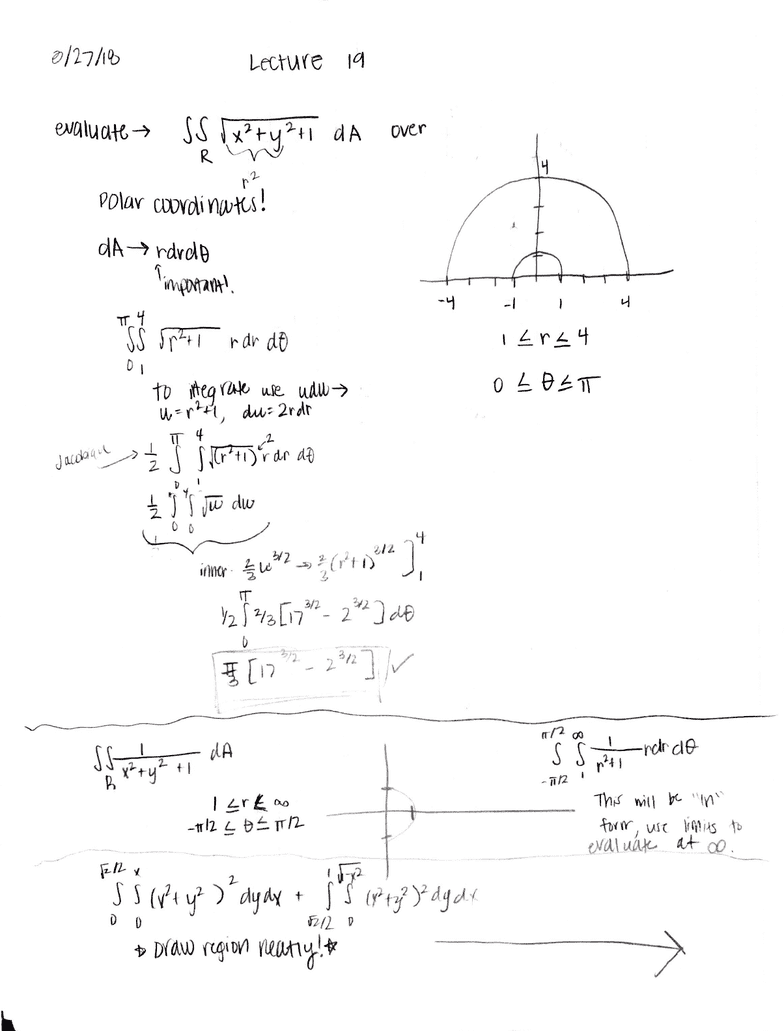 8/27/18 Lecture 19
evaluate → ∬_R √(x²+y²+1) dA over
r²
Polar coordinates!
dA → rdrdθ
↑ important!
4
-4 -1 1 4
1 ≤ r ≤ 4
0 ≤ θ ≤ π
∫_0^π ∫_1^4 √(r²+1) r dr dθ
to integrate use udu →
u = r²+1, du = 2rdr
Jacobian → 1/2 ∫_0^π ∫_1^4 √(r²+1) 2 r dr dθ
1/2 ∫_0 ∫_0^4 √u du
inner: 2/3 u^3/2 → 2/3 (r²+1)^3/2 ]_1^4
1/2 ∫_0^π 2/3 [17^3/2 - 2^3/2] dθ
π/3 [17^3/2 - 2^3/2] ✓
∬_R 1/(x²+y²+1) dA
1 ≤ r ≤ ∞
-π/2 ≤ θ ≤ π/2
∫_-π/2^π/2 ∫_1^∞ 1/(r²+1) rdrdθ
This will be "ln"
form, use limits to
evaluate at ∞.
∫_0^√2/2 ∫_0^x (x²+y²)² dydx + ∫_√2/2^1 ∫_0^√(1-x²) (x²+y²)² dydx
* Draw region neatly! *